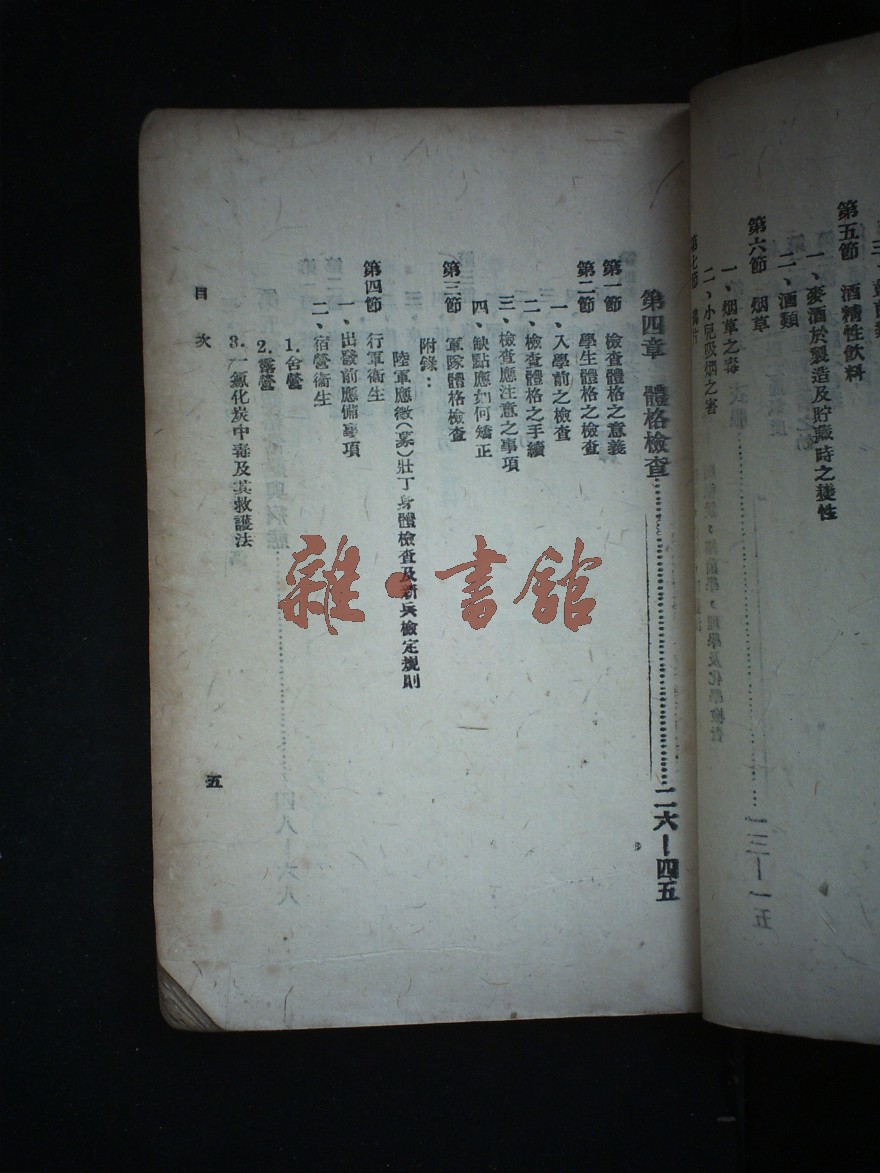 第五節 酒精性飲料
一、麥酒於製造及貯藏時之變性
二、酒類
第六節 烟草
一、烟草之毒
二、小兒吸烟之害
第四章 體格檢查……二六—四五
第一節 檢查體格之意義
第二節 學生體格之檢查
一、入學前之檢查
二、檢查體格之手續
三、檢查應注意之事項
四、缺點應如何矯正
第三節 軍隊體格檢查
附錄：
陸軍應徵(募)壯丁身體檢查及新兵檢定規則
第四節 行軍衛生
一、出發前應備事項
二、宿營衛生
1.舍營
2.露營
3.一氧化炭中毒及其救護法
目次
五
雜·書館